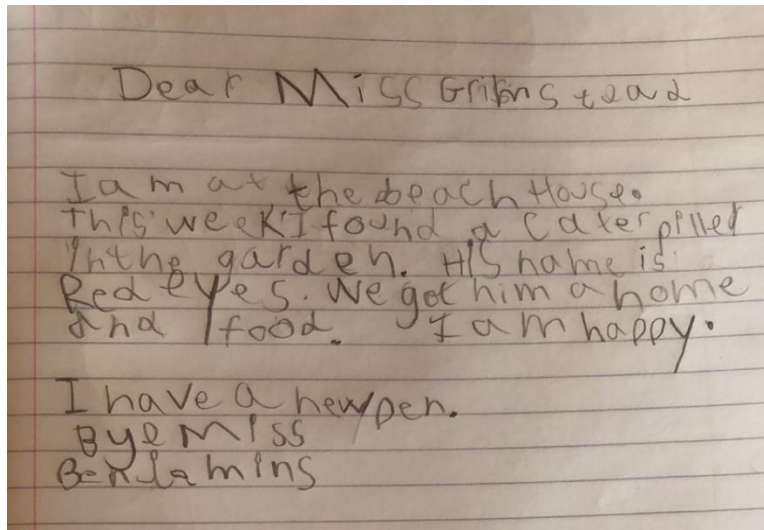 Dear Miss
I am at the beach House.
This week I found a Caterpiller
in the garden. His name is
Red eyes. We got him a home
and food. I am happy.
I have a new pen.
Bye Miss
Benjamins